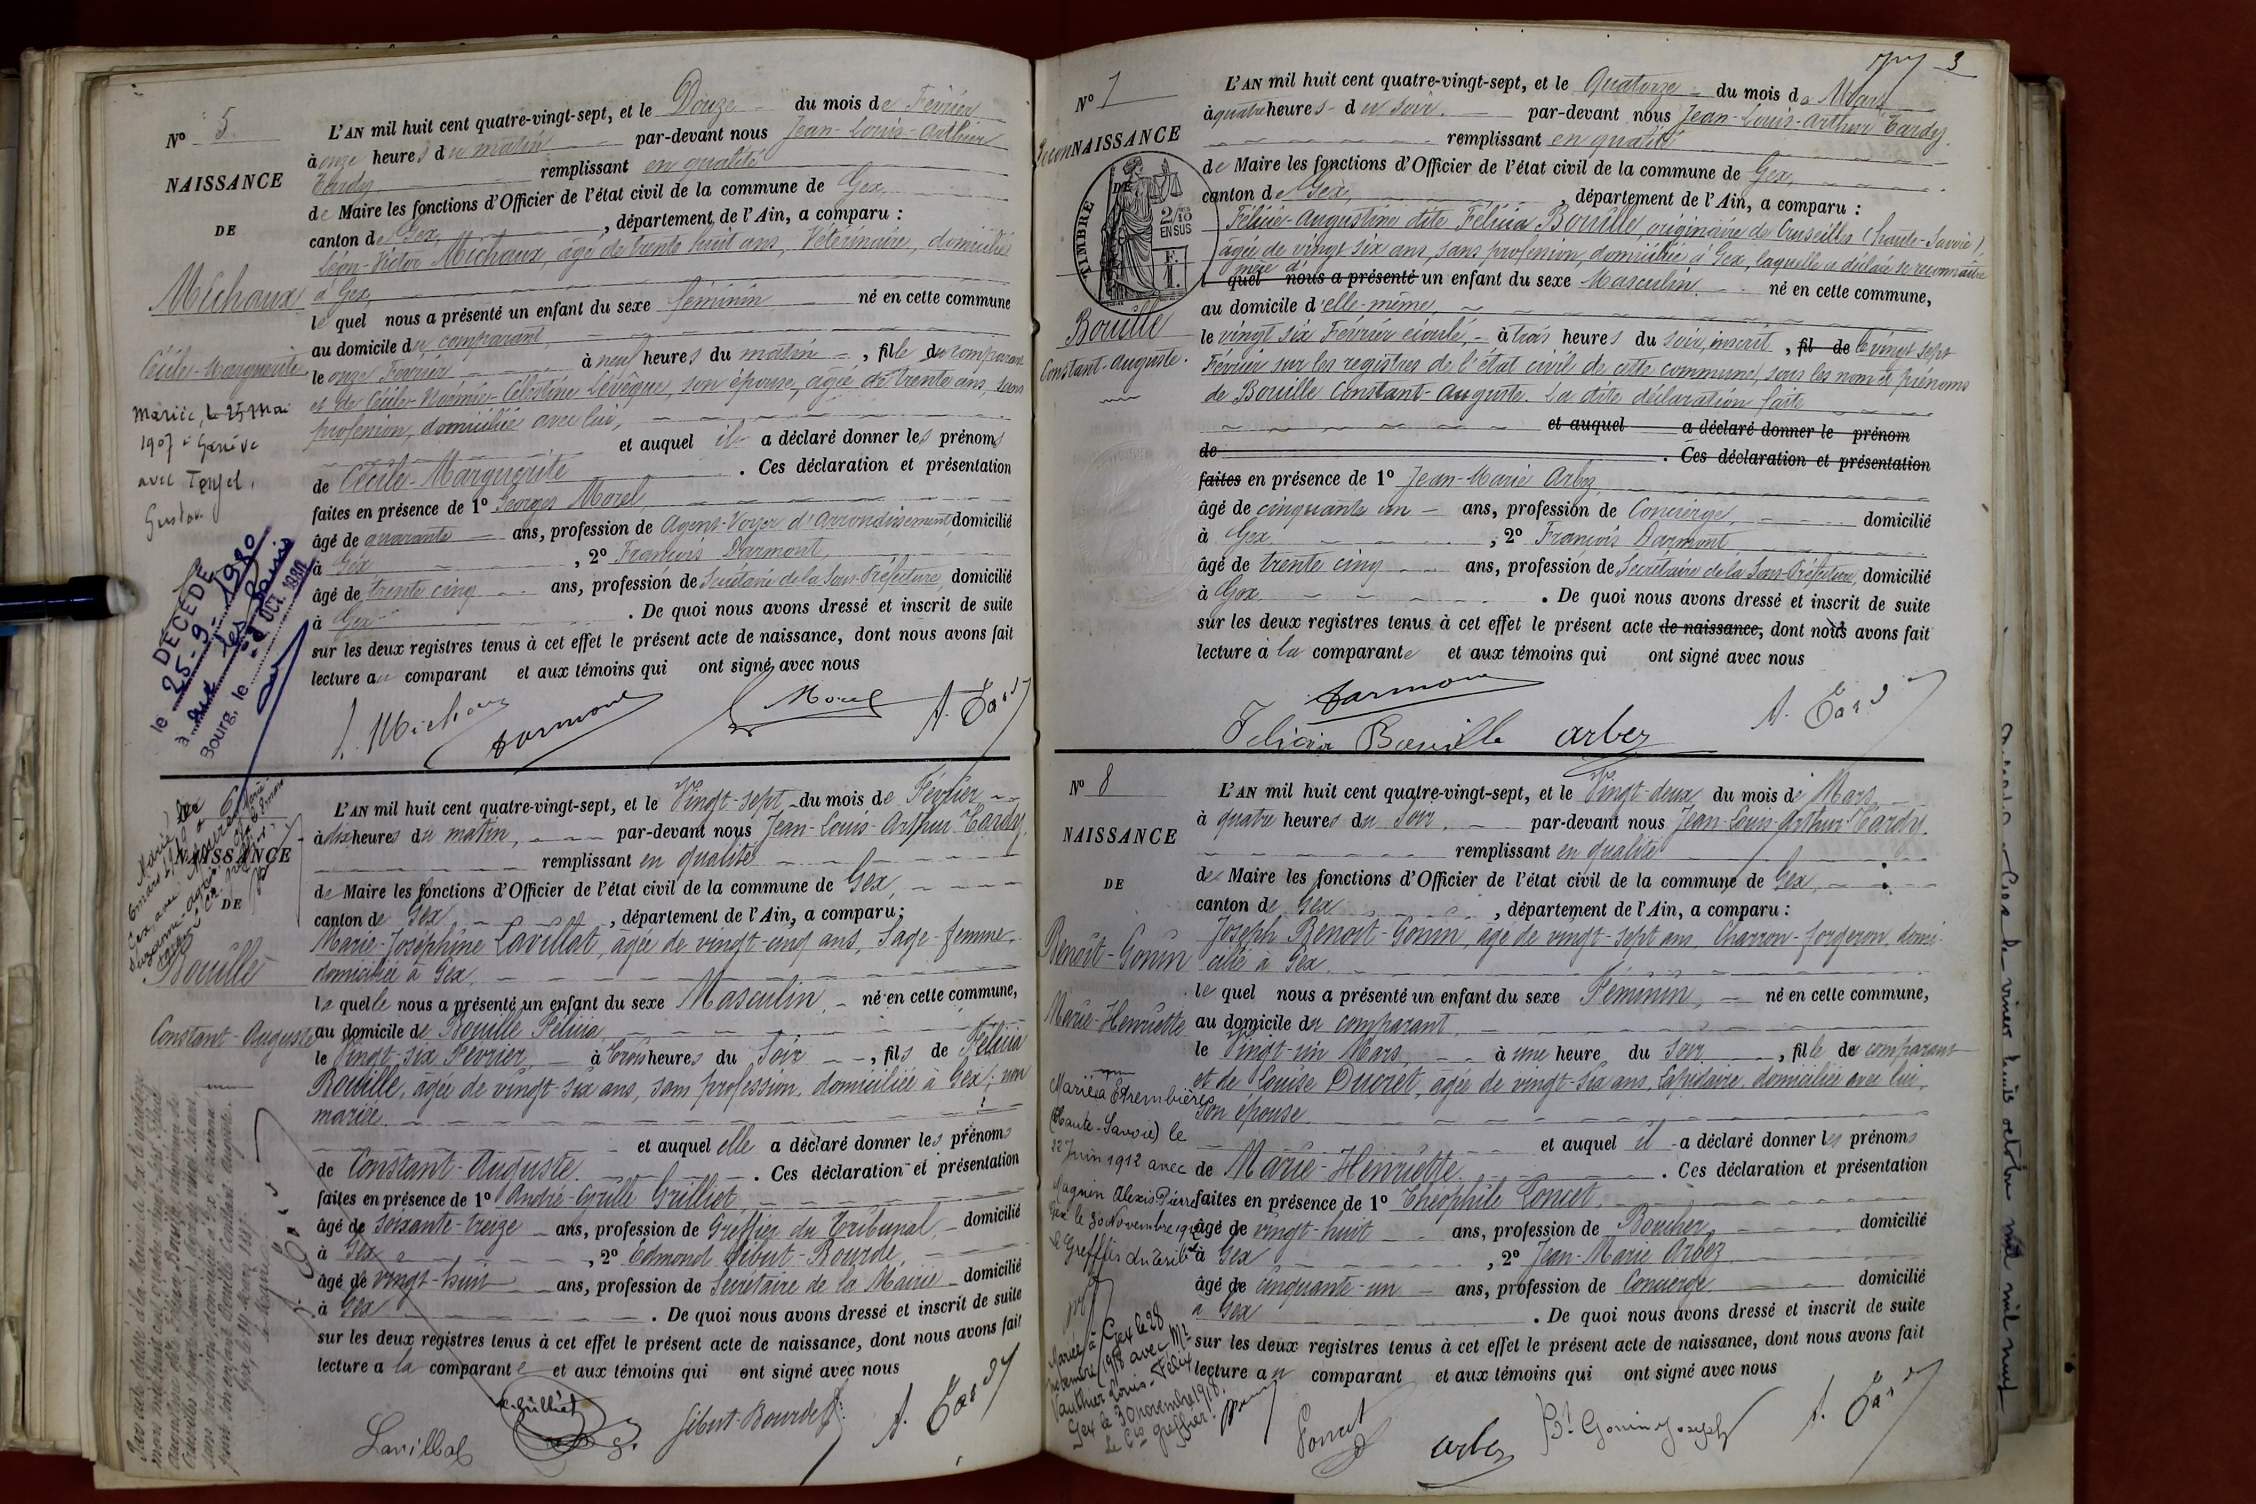 Nº 5
NAISSANCE
DE
Michaux
Cécile-Marguerite
Mariée, le 25 Mai
1907 à Genève
avec
Gustav
DÉCÉDÉE
le 25-9-1980
à
Bourg, le OCT. 1980
L'AN mil huit cent quatre-vingt-sept, et le Douze du mois de Février
à onze heures du matin par-devant nous Jean-Louis-Arthur
Tardy remplissant en qualité
de Maire les fonctions d'Officier de l'état civil de la commune de Gex
canton de Gex, département de l'Ain, a comparu :
Léon-Victor Michaux, âgé de trente huit ans, Vétérinaire, domicilié
à Gex,
lequel nous a présenté un enfant du sexe féminin né en cette commune
au domicile du comparant,
le onze Février à neuf heures du matin, fille du comparant
et de Cécile-Noémie-Célestine Lévêque, son épouse, âgée de trente ans, sans
profession, domiciliée avec lui,
et auquel il a déclaré donner les prénoms
de Cécile-Marguerite. Ces déclaration et présentation
faites en présence de 1º Georges Morel,
âgé de quarante ans, profession de Agent-Voyer d'Arrondissement, domicilié
à Gex, 2º François Darmont,
âgé de trente cinq ans, profession de Secrétaire de la Sous-Préfecture, domicilié
à Gex. De quoi nous avons dressé et inscrit de suite
sur les deux registres tenus à cet effet le présent acte de naissance, dont nous avons fait
lecture au comparant et aux témoins qui ont signé avec nous
L. Michaux Darmont Morel A. Tardy
NAISSANCE
DE
Bouille
Constant-Auguste
L'AN mil huit cent quatre-vingt-sept, et le Vingt-sept du mois de Février
à dix heures du matin, par-devant nous Jean-Louis-Arthur Tardy
remplissant en qualité
de Maire les fonctions d'Officier de l'état civil de la commune de Gex,
canton de Gex, département de l'Ain, a comparu :
Marie-Joséphine Lavillat, âgée de vingt-cinq ans, Sage-femme
domiciliée à Gex,
laquelle nous a présenté un enfant du sexe Masculin, né en cette commune,
au domicile de Bouille Félicia,
le Vingt-six Février, à Trois heures du Soir, fils de Félicia
Bouille, âgée de vingt-six ans, sans profession, domiciliée à Gex, non
mariée.
et auquel elle a déclaré donner les prénoms
de Constant-Auguste. Ces déclaration et présentation
faites en présence de 1º André-Cyrille Grilliet,
âgé de soixante-treize ans, profession de Greffier du Tribunal, domicilié
à Gex, 2º Edmond Sibut-Bourde,
âgé de vingt-huit ans, profession de Secrétaire de la Mairie domicilié
à Gex. De quoi nous avons dressé et inscrit de suite
sur les deux registres tenus à cet effet le présent acte de naissance, dont nous avons fait
lecture à la comparante et aux témoins qui ont signé avec nous
Lavillat Grilliet Sibut-Bourde A. Tardy
Par acte dressé à la Mairie de Gex le quatorze
mars mil huit cent quatre-vingt-sept, Félicie
Augustine dite Félicia Bouille originaire de
Cruseilles (Haute-Savoie) âgée de vingt-six ans,
sans profession, domiciliée à Gex a reconnu
pour son enfant Bouille Constant Auguste.
Gex, le 14 Mars 1887.
3
Nº 7
ReconNAISSANCE
DE
TIMBRE
2/10
EN SUS
Bouille
Constant-Auguste.
L'AN mil huit cent quatre-vingt-sept, et le Quatorze du mois de Mars
à quatre heures du soir. par-devant nous Jean-Louis-Arthur Tardy.
remplissant en qualité
de Maire les fonctions d'Officier de l'état civil de la commune de Gex,
canton de Gex, département de l'Ain, a comparu :
Félicie-Augustine dite Félicia Bouille, originaire de Cruseilles (Haute-Savoie)
âgée de vingt six ans, sans profession, domiciliée à Gex, laquelle a déclaré se reconnaître
mère d'
quel nous a présenté un enfant du sexe Masculin né en cette commune,
au domicile d'elle-même
le vingt six Février écoulé, à trois heures du soir, inscrit, fil de le vingt sept
Février sur les registres de l'état civil de cette commune, sous les nom et prénoms
de Bouille Constant-Auguste. La dite déclaration faite
et auquel a déclaré donner le prénom
de . Ces déclaration et présentation
faites en présence de 1º Jean-Marie Arbez
âgé de cinquante un ans, profession de Concierge, domicilié
à Gex, 2º François Darmont
âgé de trente cinq ans, profession de Secrétaire de la Sous-Préfecture, domicilié
à Gex. De quoi nous avons dressé et inscrit de suite
sur les deux registres tenus à cet effet le présent acte de naissance, dont nous avons fait
lecture à la comparante et aux témoins qui ont signé avec nous
Darmont
Felicia Bouille arbez A. Tardy
Nº 8
NAISSANCE
DE
Benoît-Gonin
Marie-Henriette
Mariée à Etrembières
(Haute-Savoie) le
22 Juin 1912 avec
Magnin Alexis Pierre
Gex le 30 Novembre
Le Greffier du
Mariée à Gex le 28
novembre 1918 avec Mr
Vauthier Louis-Félix
Gex le 30 novembre 1918.
Le Cis greffier.
L'AN mil huit cent quatre-vingt-sept, et le Vingt-deux du mois de Mars
à quatre heures du Soir. par-devant nous Jean-Louis-Arthur Tardy.
remplissant en qualité
de Maire les fonctions d'Officier de l'état civil de la commune de Gex,
canton de Gex, département de l'Ain, a comparu :
Joseph Benoit-Gonin, âgé de vingt-sept ans, Charron-forgeron, domi-
cilié à Gex.
lequel nous a présenté un enfant du sexe Féminin, né en cette commune,
au domicile du comparant
le Vingt-un Mars, à une heure du Soir, fille de comparant
et de Louise Ducret, âgée de vingt-six ans, Lapidaire, domiciliée avec lui,
son épouse
et auquel il a déclaré donner les prénoms
de Marie-Henriette. Ces déclaration et présentation
faites en présence de 1º Théophile Poncet,
âgé de vingt-huit ans, profession de Boucher, domicilié
à Gex, 2º Jean-Marie Arbez
âgé de cinquante-un ans, profession de Concierge domicilié
à Gex. De quoi nous avons dressé et inscrit de suite
sur les deux registres tenus à cet effet le présent acte de naissance, dont nous avons fait
lecture au comparant et aux témoins qui ont signé avec nous
Poncet arbez Bt Gonin Joseph A. Tardy